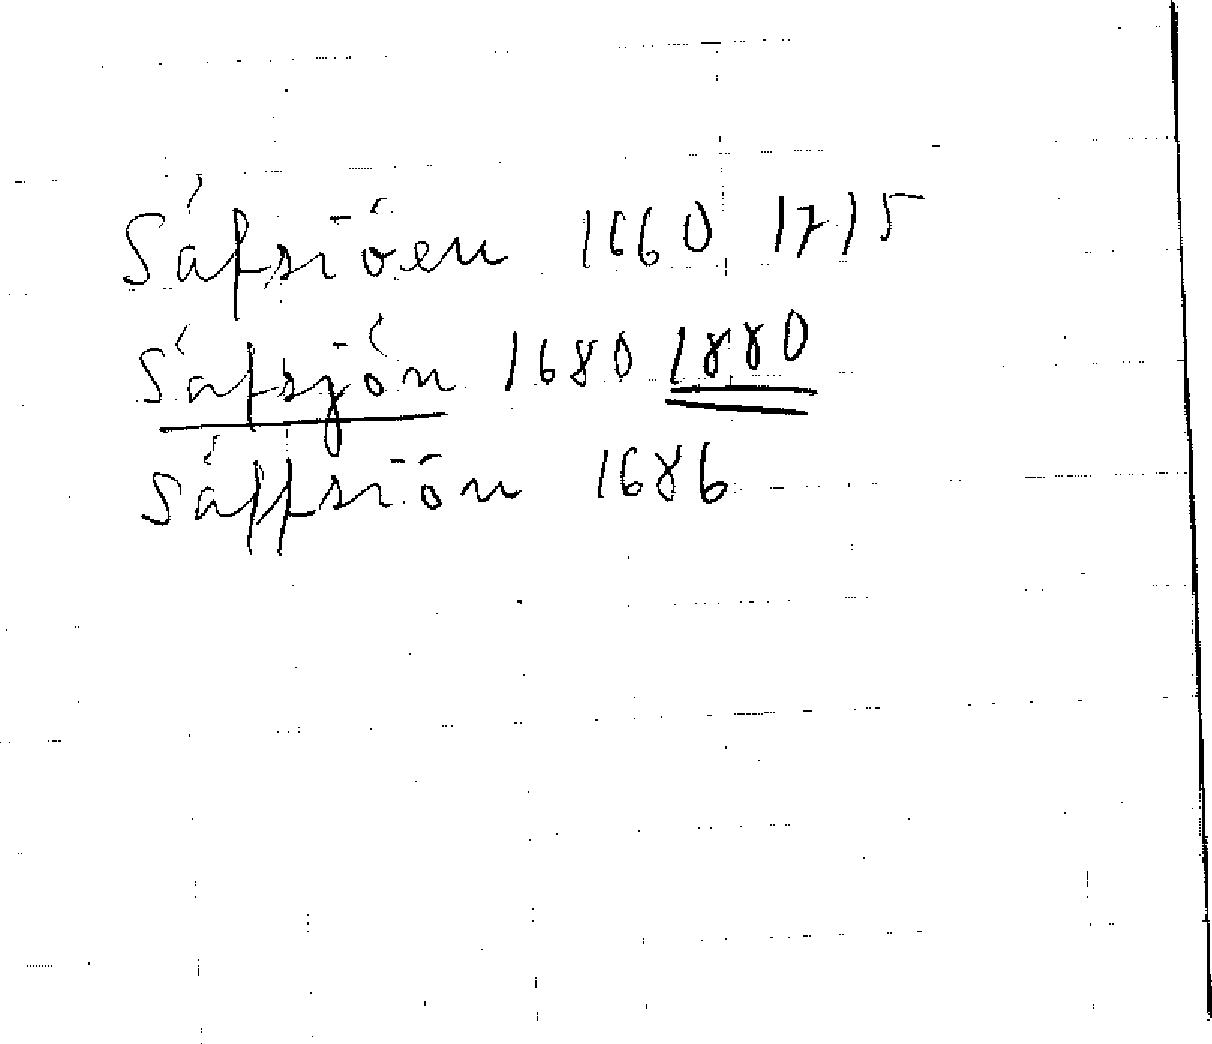 Säfsiöen 1660 1715
Säfsjön 1680 1880
Säffsiön 1686